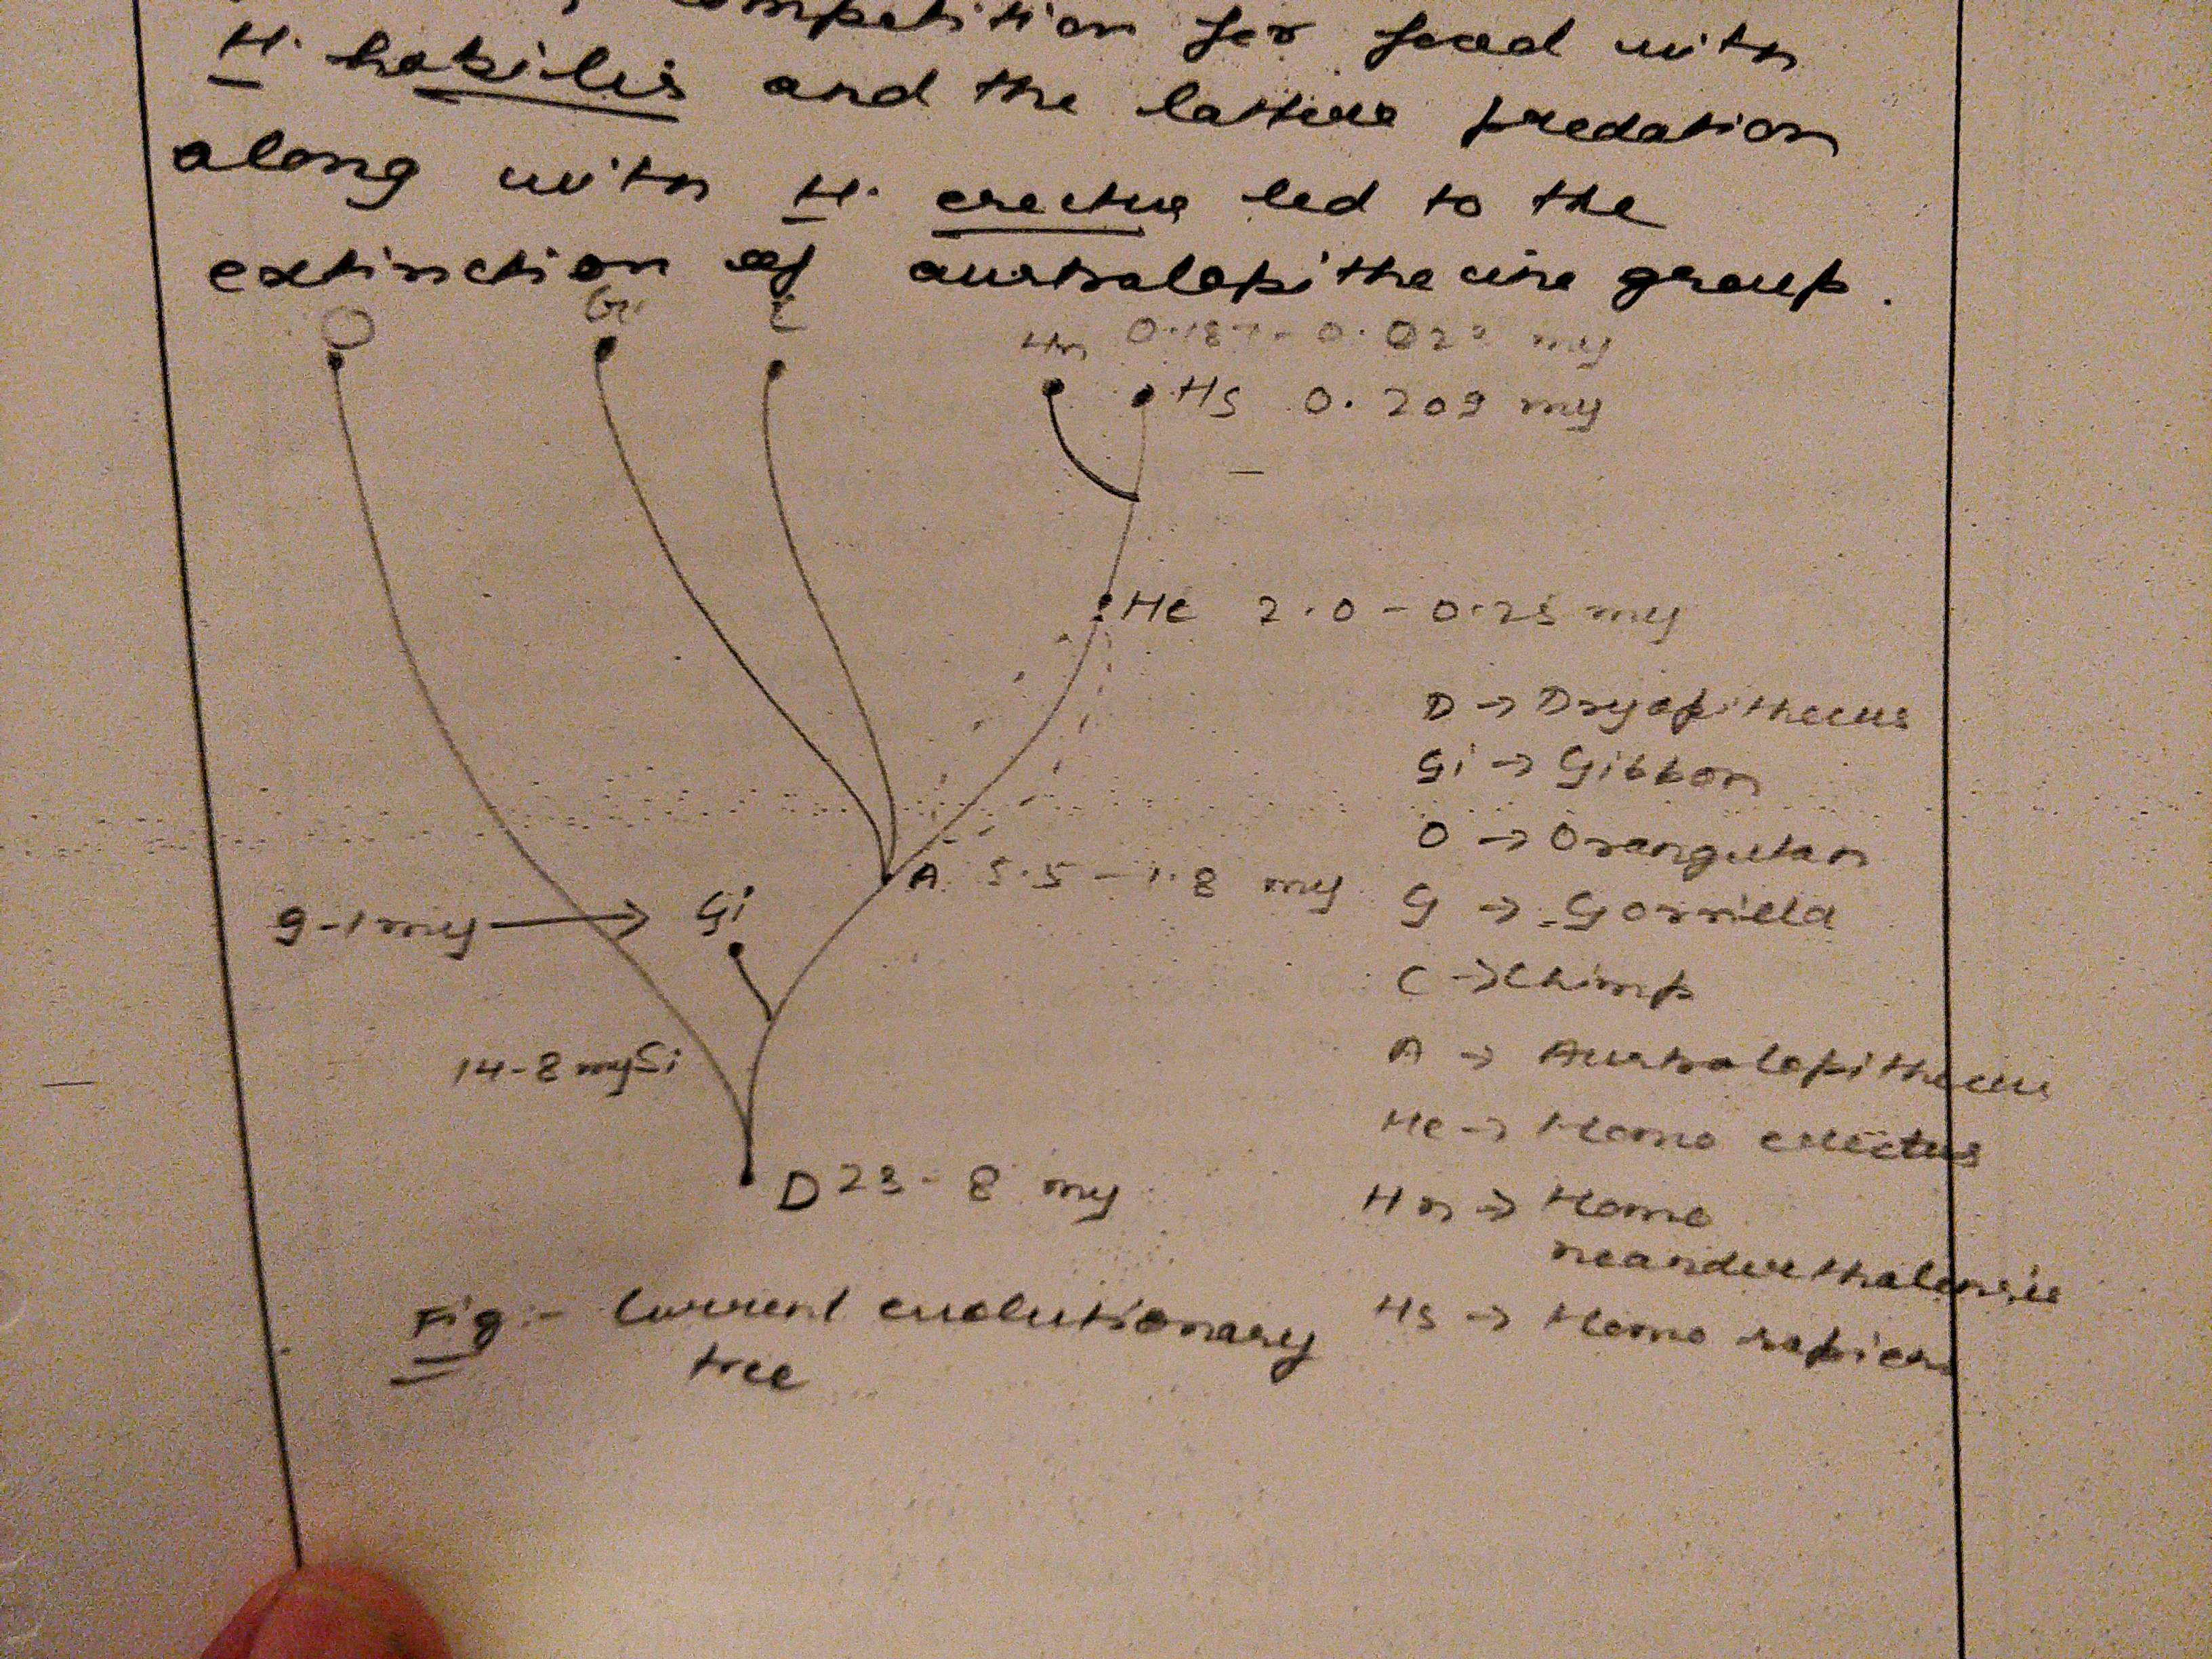 competition for food with
H. habilis and the latter predation
along with H. erectus led to the
extinction of australopithecine group.
O
C
Hn
my
Hs 0.209 my
He 2.0 - 0.25 my
D → Dryopithecus
Gi → Gibbon
O → Orangutan
A 5.5 - 1.8 my
G → Gorrilla
9-1 my → Gi
C → Chimp
14-8 my Si
A → Australopithecus
He → Homo erectus
D 23 - 8 my
Hn → Homo
neanderthalensis
Fig:- Current evolutionary
tree
Hs → Homo sapiens